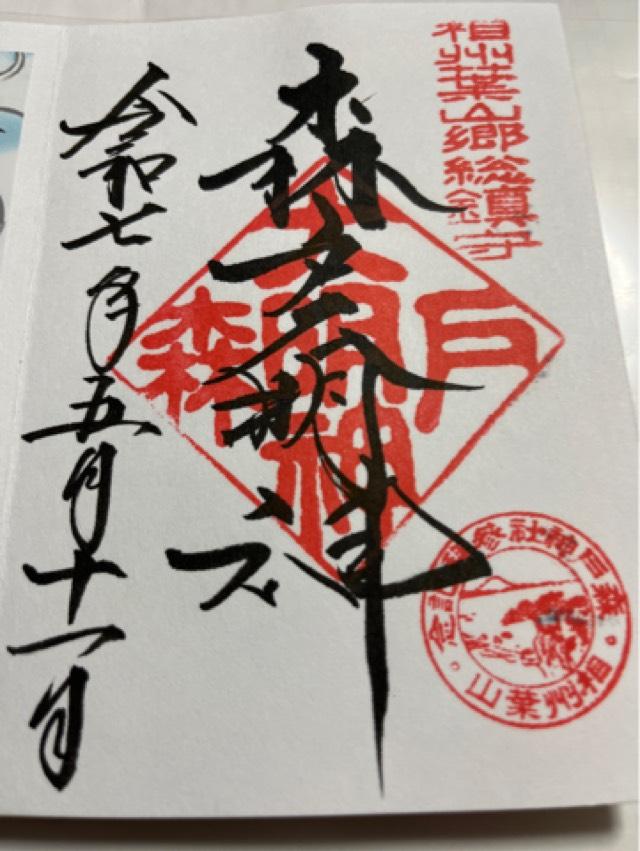 相州葉山郷総鎮守
森戸大明神
森戸大明神
令和七年五月十一日
相州葉山